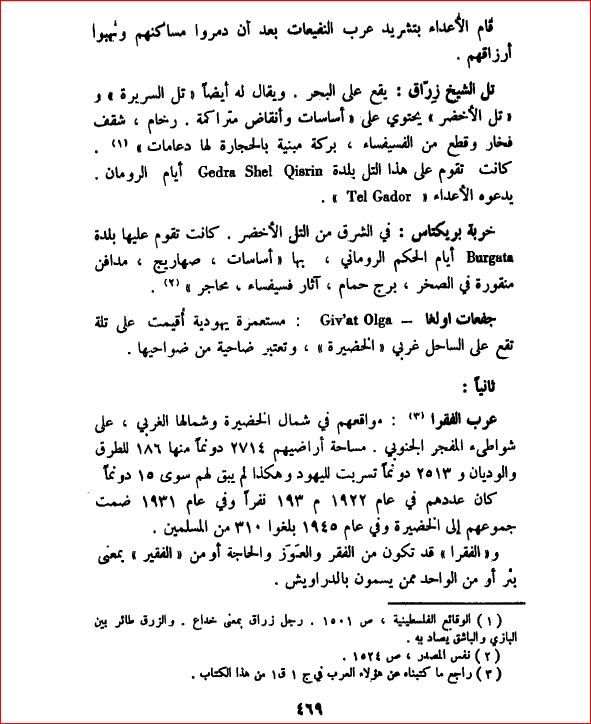 قام الأعداء بتشريد عرب النفيعات بعد أن دمروا مساكنهم ونهبوا
أرزاقهم .
تل الشيخ زرّاق : يقع على البحر . ويقال له أيضاً « تل السريرة » و
« تل الأخضر » يحتوي على « أساسات وأنقاض متراكمة . رخام ، شقف
فخار وقطع من الفسيفساء ، بركة مبنية بالحجارة لها دعامات » (١) .
كانت تقوم على هذا التل بلدة Gedra Shel Qisrin أيام الرومان .
يدعوه الأعداء « Tel Gador » .
خربة بريكتاس : في الشرق من التل الأخضر . كانت تقوم عليها بلدة
Burgata أيام الحكم الروماني ، بها « أساسات ، صهاريج ، مدافن
منقورة في الصخر ، برج حمام ، آثار فسيفساء ، محاجر » (٢) .
جفعات اولغا – Giv'at Olga : مستعمرة يهودية أُقيمت على تلة
تقع على الساحل غربي « الخضيرة » ، وتعتبر ضاحية من ضواحيها .
ثانياً :
عرب الفقرا (٣) : مواقعهم في شمال الخضيرة وشمالها الغربي ، على
شواطىء المفجر الجنوبي . مساحة أراضيهم ٢٧١٤ دونماً منها ١٨٦ للطرق
والوديان و ٢٥١٣ دونماً تسربت لليهود وهكذا لم يبق لهم سوى ١٥ دونماً
كان عددهم في عام ١٩٢٢ م ١٩٣ نفراً وفي عام ١٩٣١ ضمت
جموعهم إلى الخضيرة وفي عام ١٩٤٥ بلغوا ٣١٠ من المسلمين .
و « الفقرا » قد تكون من الفقر والعَوَز والحاجة أو من « الفقير » بمعنى
بئر أو من الواحد ممن يسمون بالدراويش .
(١) الوقائع الفلسطينية ، ص ١٥٠١ . رجل زراق بمعنى خداع . والزرق طائر بين
البازي والباشق يصاد به .
(٢) نفس المصدر ، ص ١٥٢٤ .
(٣) راجع ما كتبناه عن هؤلاء العرب في ج ١ ق١ من هذا الكتاب .
٤٦٩